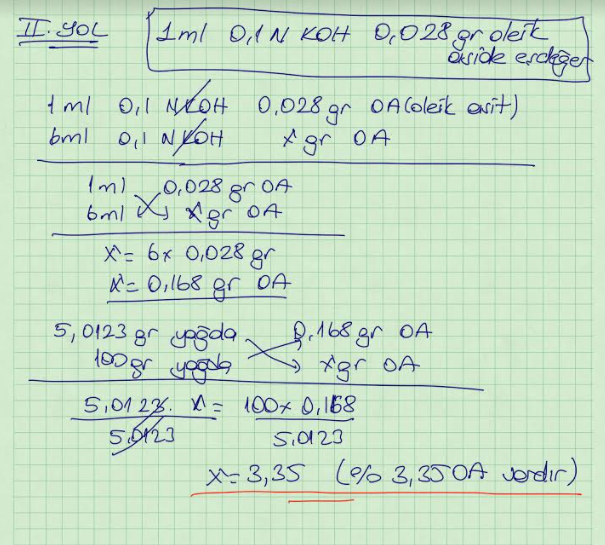 II. YOL
1ml 0,1 N KOH 0,028 gr oleik
aside eşdeğer
1 ml 0,1 N KOH 0,028 gr OA (oleik asit)
6ml 0,1 N KOH x gr OA
1ml 0,028 gr OA
6ml x gr OA
x = 6 x 0,028 gr
x = 0,168 gr OA
5,0123 gr yağda 0,168 gr OA
100 gr yağda x gr OA
5,0123. x = 100 x 0,168
5,0123 5,0123
x = 3,35 (% 3,35 OA vardır)